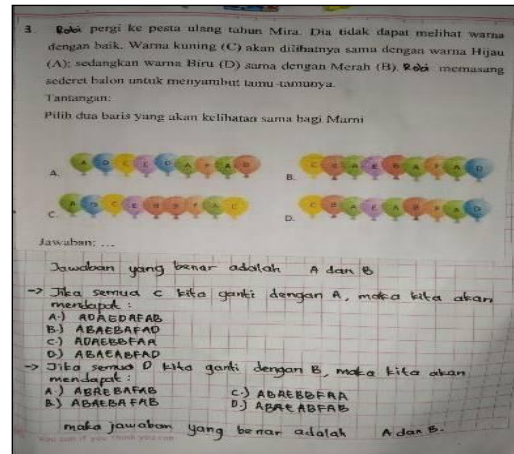 3. Robi pergi ke pesta ulang tahun Mira. Dia tidak dapat melihat warna
dengan baik. Warna kuning (C) akan dilihatnya sama dengan warna Hijau
(A); sedangkan warna Biru (D) sama dengan Merah (B). Robi memasang
sederet balon untuk menyambut tamu-tamunya.
Tantangan:
Pilih dua baris yang akan kelihatan sama bagi Marni
A.
B.
C.
D.
Jawaban: ...
Jawaban yang benar adalah A dan B
-> Jika semua C kita ganti dengan A, maka kita akan
mendapat :
A.) ADAEDAFAB
B.) ABAEBAFAD
C.) ADAEBBFAA
D.) ABAEABFAD
-> Jika semua D kita ganti dengan B, maka kita akan
mendapat :
A.) ABAEBAFAB C.) ABAEBBFAA
B.) ABAEBAFAB D.) ABAEABFAB
maka jawaban yang benar adalah A dan B.
You can if you think you can